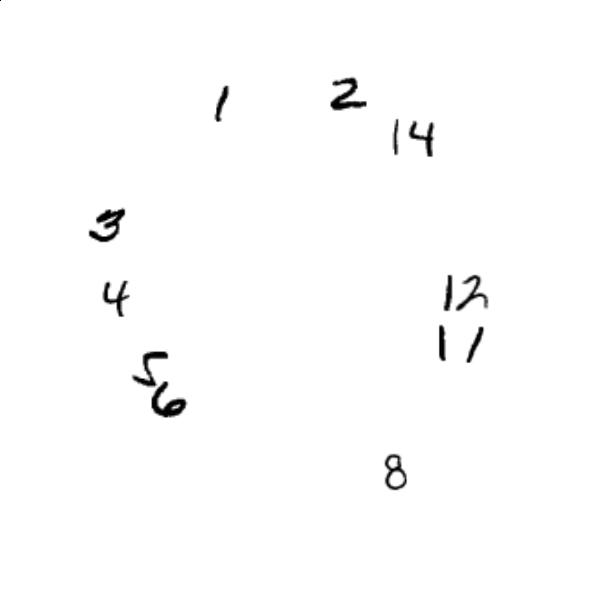 1 2
14
3
4 12
11
5
6
8